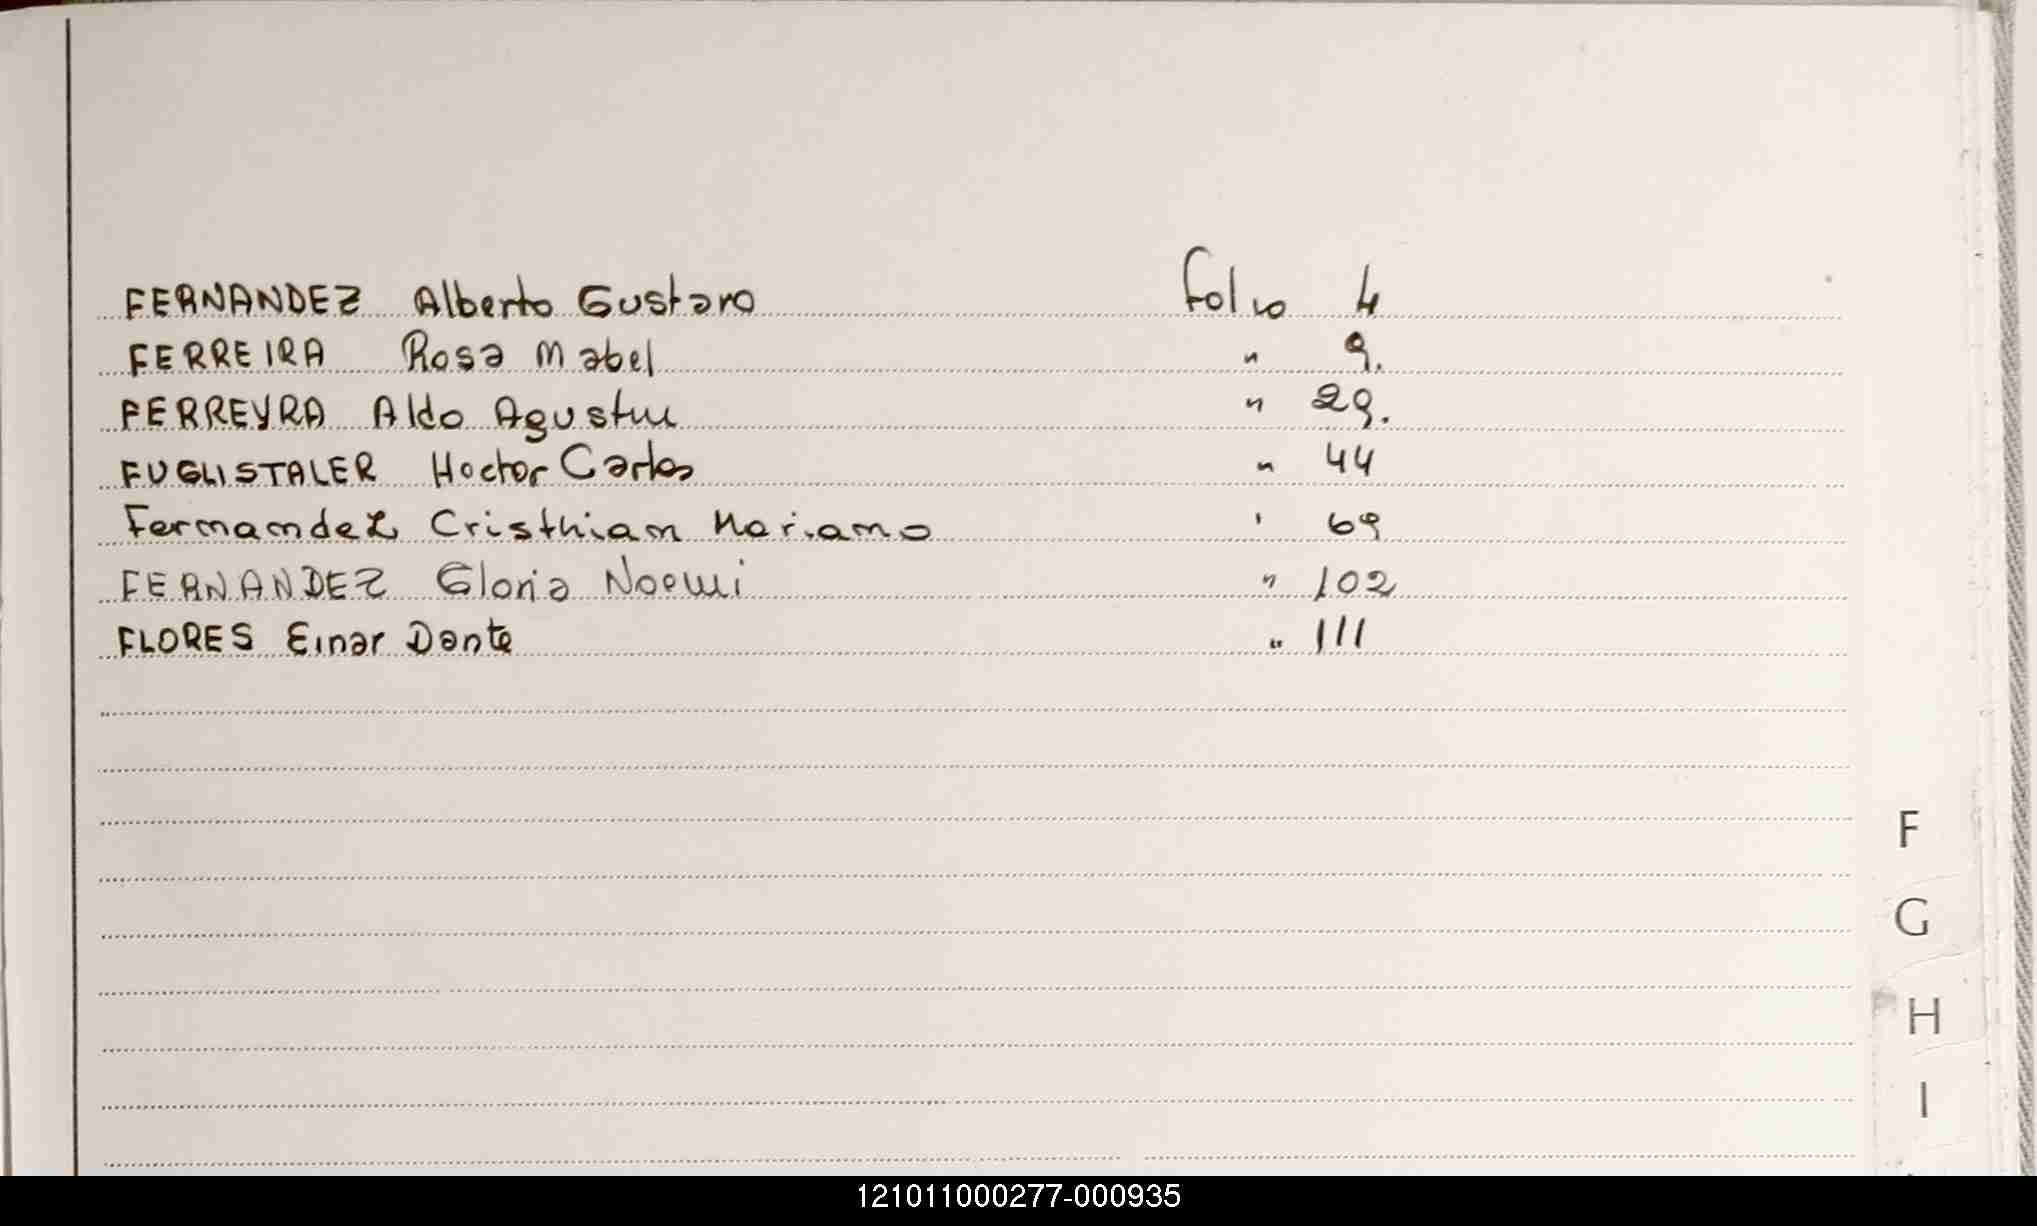 FERNANDEZ Alberto Gustavo Folio 4
FERREIRA Rosa Mabel " 9.
FERREYRA Aldo Agustin " 29.
FUGLISTALER Hector Carlos " 44
Fernandez Cristhian Mariano ' 69
FERNANDEZ Gloria Noemi " 102
FLORES Einar Dante " 111
F
G
H
I
121011000277-000935